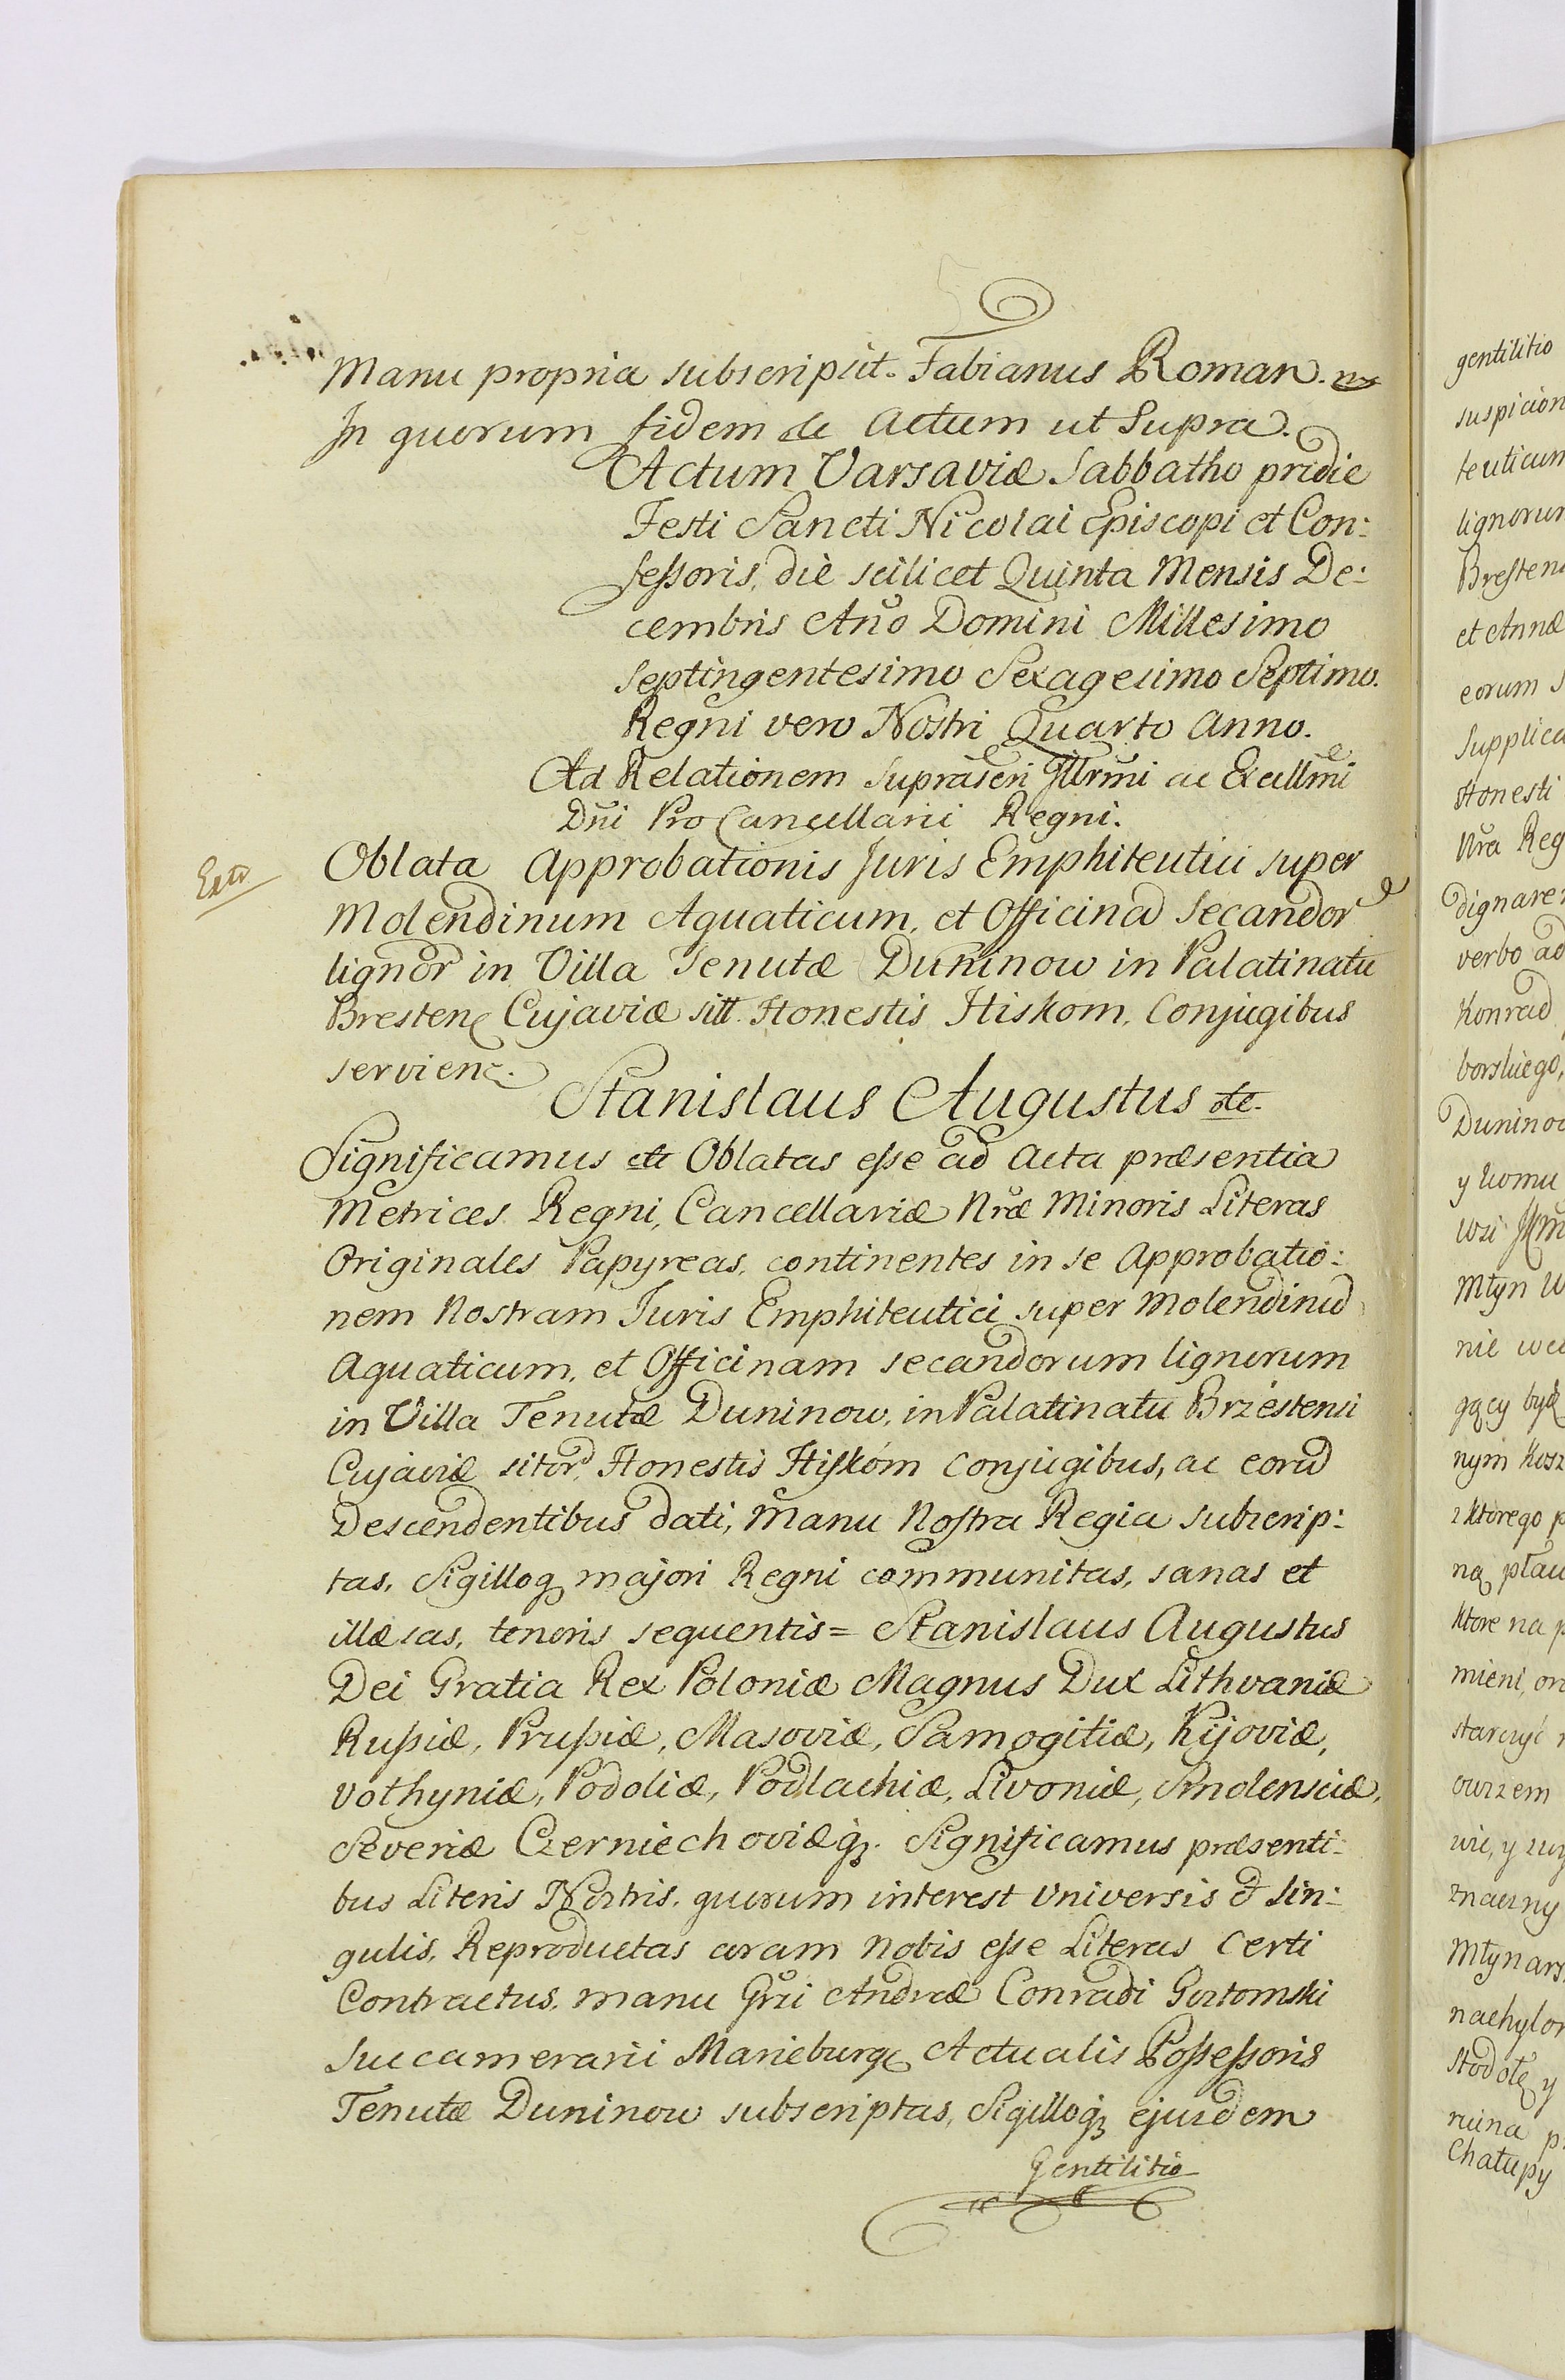 Manu propria subscripsit. Fabianus Roman. mp
In quorum fidem &c Actum ut Supra.
Actum Varsaviæ Sabbatho pridie
Festi Sancti Nicolai Episcopi et Con:
feſsoris, die scilicet Quinta Mensis De:
cembris Año Domini Millesimo
Septingentesimo Sexagesimo Septimo.
Regni vero Nostri Quarto Anno.
Ad Relationem suprascri Illrmi ac Excellmi
Dni Pro Cancellarii Regni.
Exto
Oblata Approbationis Juris Emphiteutici super
Molendinum Aquaticum, et Officinã Secandor
lignor in Villa Tenutæ Duninow in Palatinatu
Bresten Cujaviæ sitt. Honestis Hiskom. Conjugibus
servienc.
Stanislaus Augustus &c.
Significamus &c Oblatas eſse ad Acta præsentia
Metrices Regni, Cancellariæ Nræ Minoris Literas
Originales Papyreas, continentes in se Approbatio:
nem Nostram Juris Emphiteutici super Molendinũ
Aquaticum, et Officinam secandorum lignorum
in Villa Tenutæ Duninow, in Palatinatu Brzestensi
Cujaviæ sitor Honestis Hiſkom Conjugibus, ac eorũ
Descendentibus dati, Manu Noſtra Regia subscrip:
tas, Sigilloq majori Regni communitas, sanas et
illæsas, tenoris sequentis = Stanislaus Augustus
Dei Gratia Rex Poloniæ Magnus Dux Lithvaniæ
Ruſsiæ, Pruſsiæ, Masoviæ, Samogitiæ, Kijoviæ,
Volhyniæ, Podoliæ, Podlachiæ, Livoniæ, Smolensciæ,
Severiæ Czerniechoviæq. Significamus præsenti:
bus Literis Nostris, quorum interest Universis & Sin:
gulis, Reproductas coram Nobis eſse Literas Certi
Contractus, manu Grsi Andreæ Conradi Gortomski
Succamerarii Marieburg Actualis Poſseſsoris
Tenutæ Duninow subscriptas, Sigilloq ejusdem
Gentilitio
gentilitio
suspicion
teuticum
lignorum
Breſten
et Annæ
eorum S
Supplica
Honesti
Nra Reg
dignare
verbo ad
Konrad
borskiego,
Duninow
y komu
wsi
Młyn w
nie
gący
nym kosz
z ktorego p
ną
ktore na p
mieni,
starczyć
owszem
wie, y
znaczny
Młynars
nachylon
Stodołę y
ruina p
Chałupy